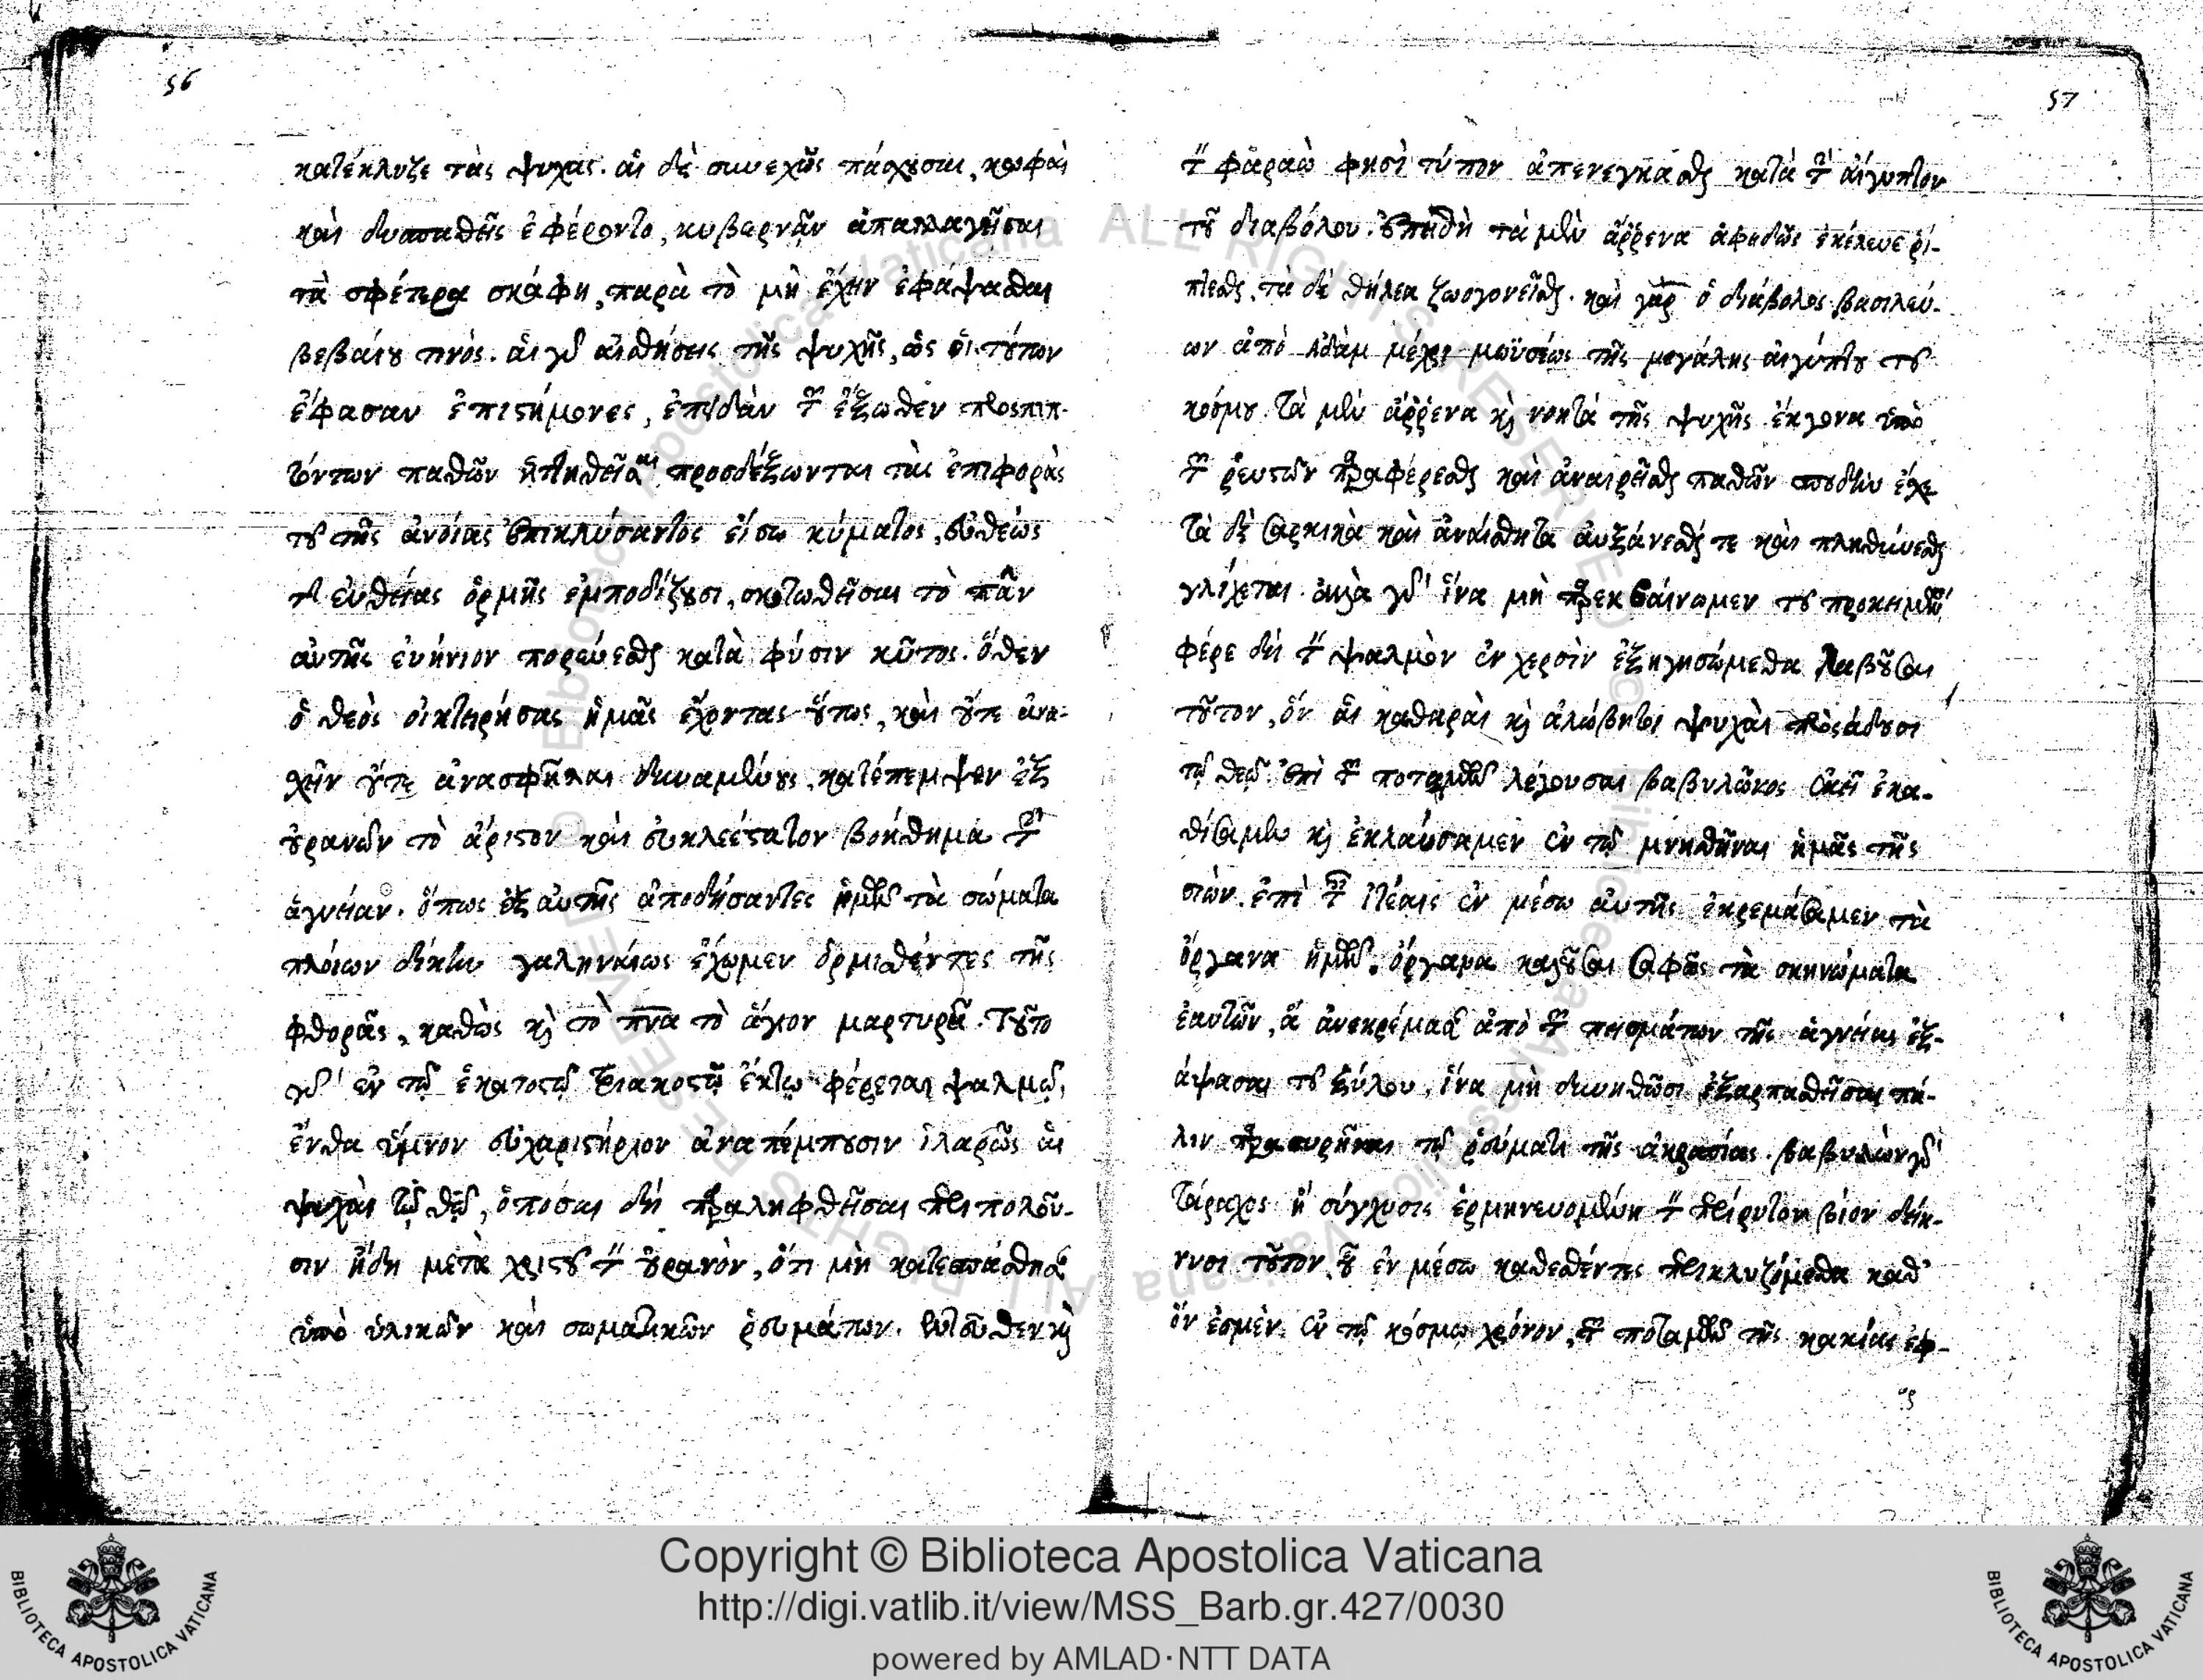 56
κατέκλυζε τὰς ψυχας. αἱ δὲ συνεχῶς πάσχουσαι, κωφαὶ
καὶ δυσπαθεῖς ἐφέροντο, κυβερνᾶν ἀπαλλαγεῖσαι
τὰ σφέτερα σκάφη, παρὰ τὸ μὴ ἔχειν ἐφάψασθαι
βεβαίου τινός. αἱ γὰρ αἰσθήσεις τῆς ψυχῆς, ὡς οἱ τούτων
ἔφασαν ἐπιστήμονες, ἐπειδὰν τῶν ἔξωθεν προσπιπ-
τόντων παθῶν ἡττηθεῖσαι προσδέξωνται τὰς ἐπιφορὰς
τοῦ τῆς ἀνοίας ἐπικλύσαντος εἴσω κύματος, εὐθέως
τῆς εὐθείας ὁρμῆς ἐμποδίζουσι, σκοτωθεῖσαι τὸ πᾶν
αὐτῆς εὐήνιον πορεύεσθαι κατὰ φύσιν κῦτος. ὅθεν
ὁ θεὸς οἰκτειρήσας ἡμᾶς ἔχοντας οὕτως, καὶ οὔτε ἀνα-
χεῖν οὔτε ἀνασφῆλαι δυναμένους, κατέπεμψεν ἐξ
οὐρανῶν τὸ ἄριστον καὶ εὐκλεέστατον βοήθημα τὴν
ἁγνείαν. ὅπως ἐξ αὐτῆς ἀποδήσαντες ἡμῶν τὰ σώματα
πλοίων δίκην γαληναίως ἔχωμεν ὁρμισθέντες τῆς
φθορᾶς, καθὼς καὶ τὸ πνα τὸ ἅγιον μαρτυρεῖ. Τοῦτο
γὰρ ἐν τῷ ἑκατοστῷ τριακοστῷ ἕκτῳ φέρεται ψαλμῷ,
ἔνθα ὕμνον εὐχαριστήριον ἀναπέμπουσιν ἱλαρῶς αἱ
ψυχαὶ τῷ θῶ, ὁπόσαι δὴ παραληφθεῖσαι περιπολοῦ-
σιν ἤδη μετὰ χριστοῦ τὸν οὐρανὸν, ὅτι μὴ κατεσπάσθησαν
ὑπὸ ὑλικῶν καὶ σωματικῶν ῥευμάτων. ἐντεῦθεν καὶ
57
τὸν φαραὼ φησὶ τύπον ἀπενέγκασθαι κατὰ τὴν αἴγυπτον
τοῦ διαβόλου. ἐπειδὴ τὰ μὲν ἄῤῥενα ἀφειδῶς ἐκέλευε ῥί-
πτεσθαι, τὰ δὲ θήλεα ζωογονεῖσθαι. καὶ γὰρ ὁ διάβολος βασιλεύ-
ων ἀπὸ Ἀδὰμ μέχρι μωϋσέως τῆς μεγάλης αἰγύπτου τοῦ
κόσμου. τὰ μὲν ἄῤῥενα καὶ νοητὰ τῆς ψυχῆς ἔκγονα ὑπὸ
τῶν ῥευστῶν παραφέρεσθαι καὶ ἀναιρεῖσθαι παθῶν σπουδὴν ἔχει
τὰ δὲ σαρκικὰ καὶ ἀναίσθητα αὐξάνεσθαί τε καὶ πληθύνεσθαι
γλίχεται. ἀλλὰ γὰρ ἵνα μὴ παρεκβαίνωμεν τοῦ προκειμένου
φέρε δὴ τὸν ψαλμὸν ἐν χερσὶν ἐξηγησώμεθα λαβοῦσαι
τοῦτον, ὅν αἱ καθαραὶ καὶ ἀλώβητοι ψυχαὶ προσᾴδουσι
τῷ θεῷ. ἐπὶ τῶν ποταμῶν λέγουσαι βαβυλῶνος ἐκεῖ ἐκα-
θίσαμεν καὶ ἐκλαύσαμεν ἐν τῷ μνησθῆναι ἡμᾶς τῆς
σιών. ἐπὶ ταῖς ἰτέαις ἐν μέσω αὐτῆς ἐκρεμάσαμεν τὰ
ὄργανα ἡμῶν. ὄργανα καλοῦσαι σαφῶς τὰ σκηνώματα
ἑαυτῶν, ἅ ἀνεκρέμασαν ἀπὸ τῶν πεισμάτων τῆς ἁγνείας ἐξ-
άψασαι τοῦ ξύλου, ἵνα μὴ δυνηθῶσι ἐξαρπασθεῖσαι πά-
λιν παρασυρῆναι τῷ ῥεύματι τῆς ἀκρασίας. βαβυλὼν γὰρ
τάραχος ἢ σύγχυσις ἑρμηνευομένη τὸν περίρυτον βίον δείκ-
νυσι τοῦτον, οὗ ἐν μέσω καθεσθέντες περικλυζόμεθα καθ'
ὅν ἐσμὲν ἐν τῷ κόσμω χρόνον, τῶν ποταμῶν τῆς κακίας ἐφ-
Copyright © Biblioteca Apostolica Vaticana
http://digi.vatlib.it/view/MSS_Barb.gr.427/0030
powered by AMLAD·NTT DATA
BIBLIOTECA APOSTOLICA VATICANA
BIBLIOTECA APOSTOLICA VATICANA